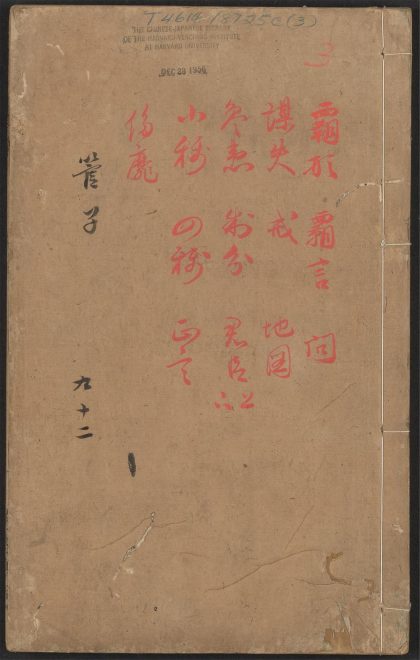 THE CHINESE-JAPANESE LIBRARY
OF THE HARVARD-YENCHING INSTITUTE
AT HARVARD UNIVERSITY
DEC 28
3
霸形 霸言 問
謀失 戒 地図
参患 制分 君臣上下
小稱 四稱 正言
侈靡
管子 九 十二